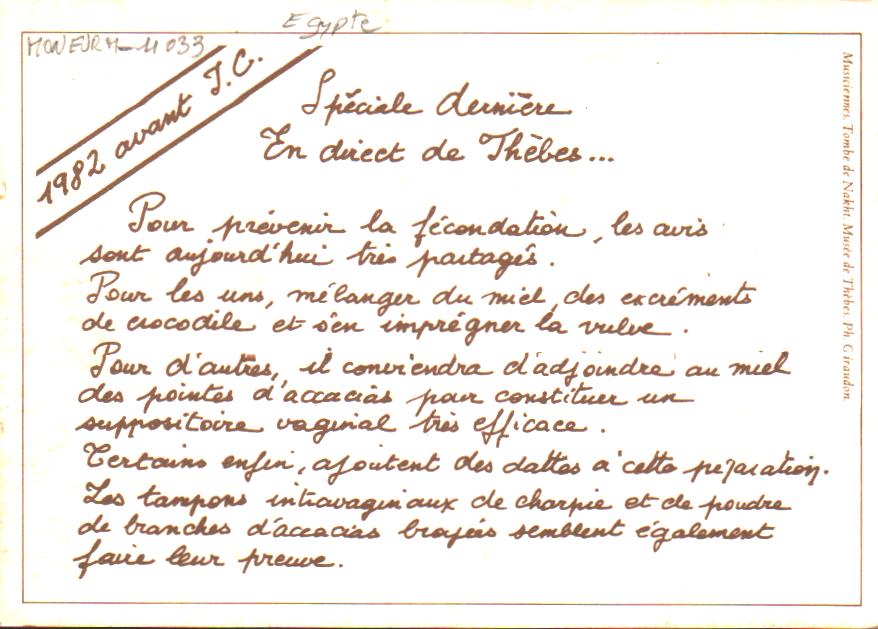 Egypte
MONEURM_11 033
1982 avant J.C.
Spéciale dernière
En direct de Thèbes...
Pour prévenir la fécondation, les avis
sont aujourd'hui très partagés.
Pour les uns, mélanger du miel, des excréments
de crocodile et s'en imprégner la vulve.
Pour d'autres, il conviendra d'adjoindre au miel
des pointes d'accacias pour constituer un
suppositoire vaginal très efficace.
Certains enfin, ajoutent des dattes à cette préparation.
Les tampons intravaginaux de charpie et de poudre
de branches d'accacias broyées semblent également
faire leur preuve.
Musiciennes. Tombe de Nakht. Musée de Thèbes. Ph. Giraudon.